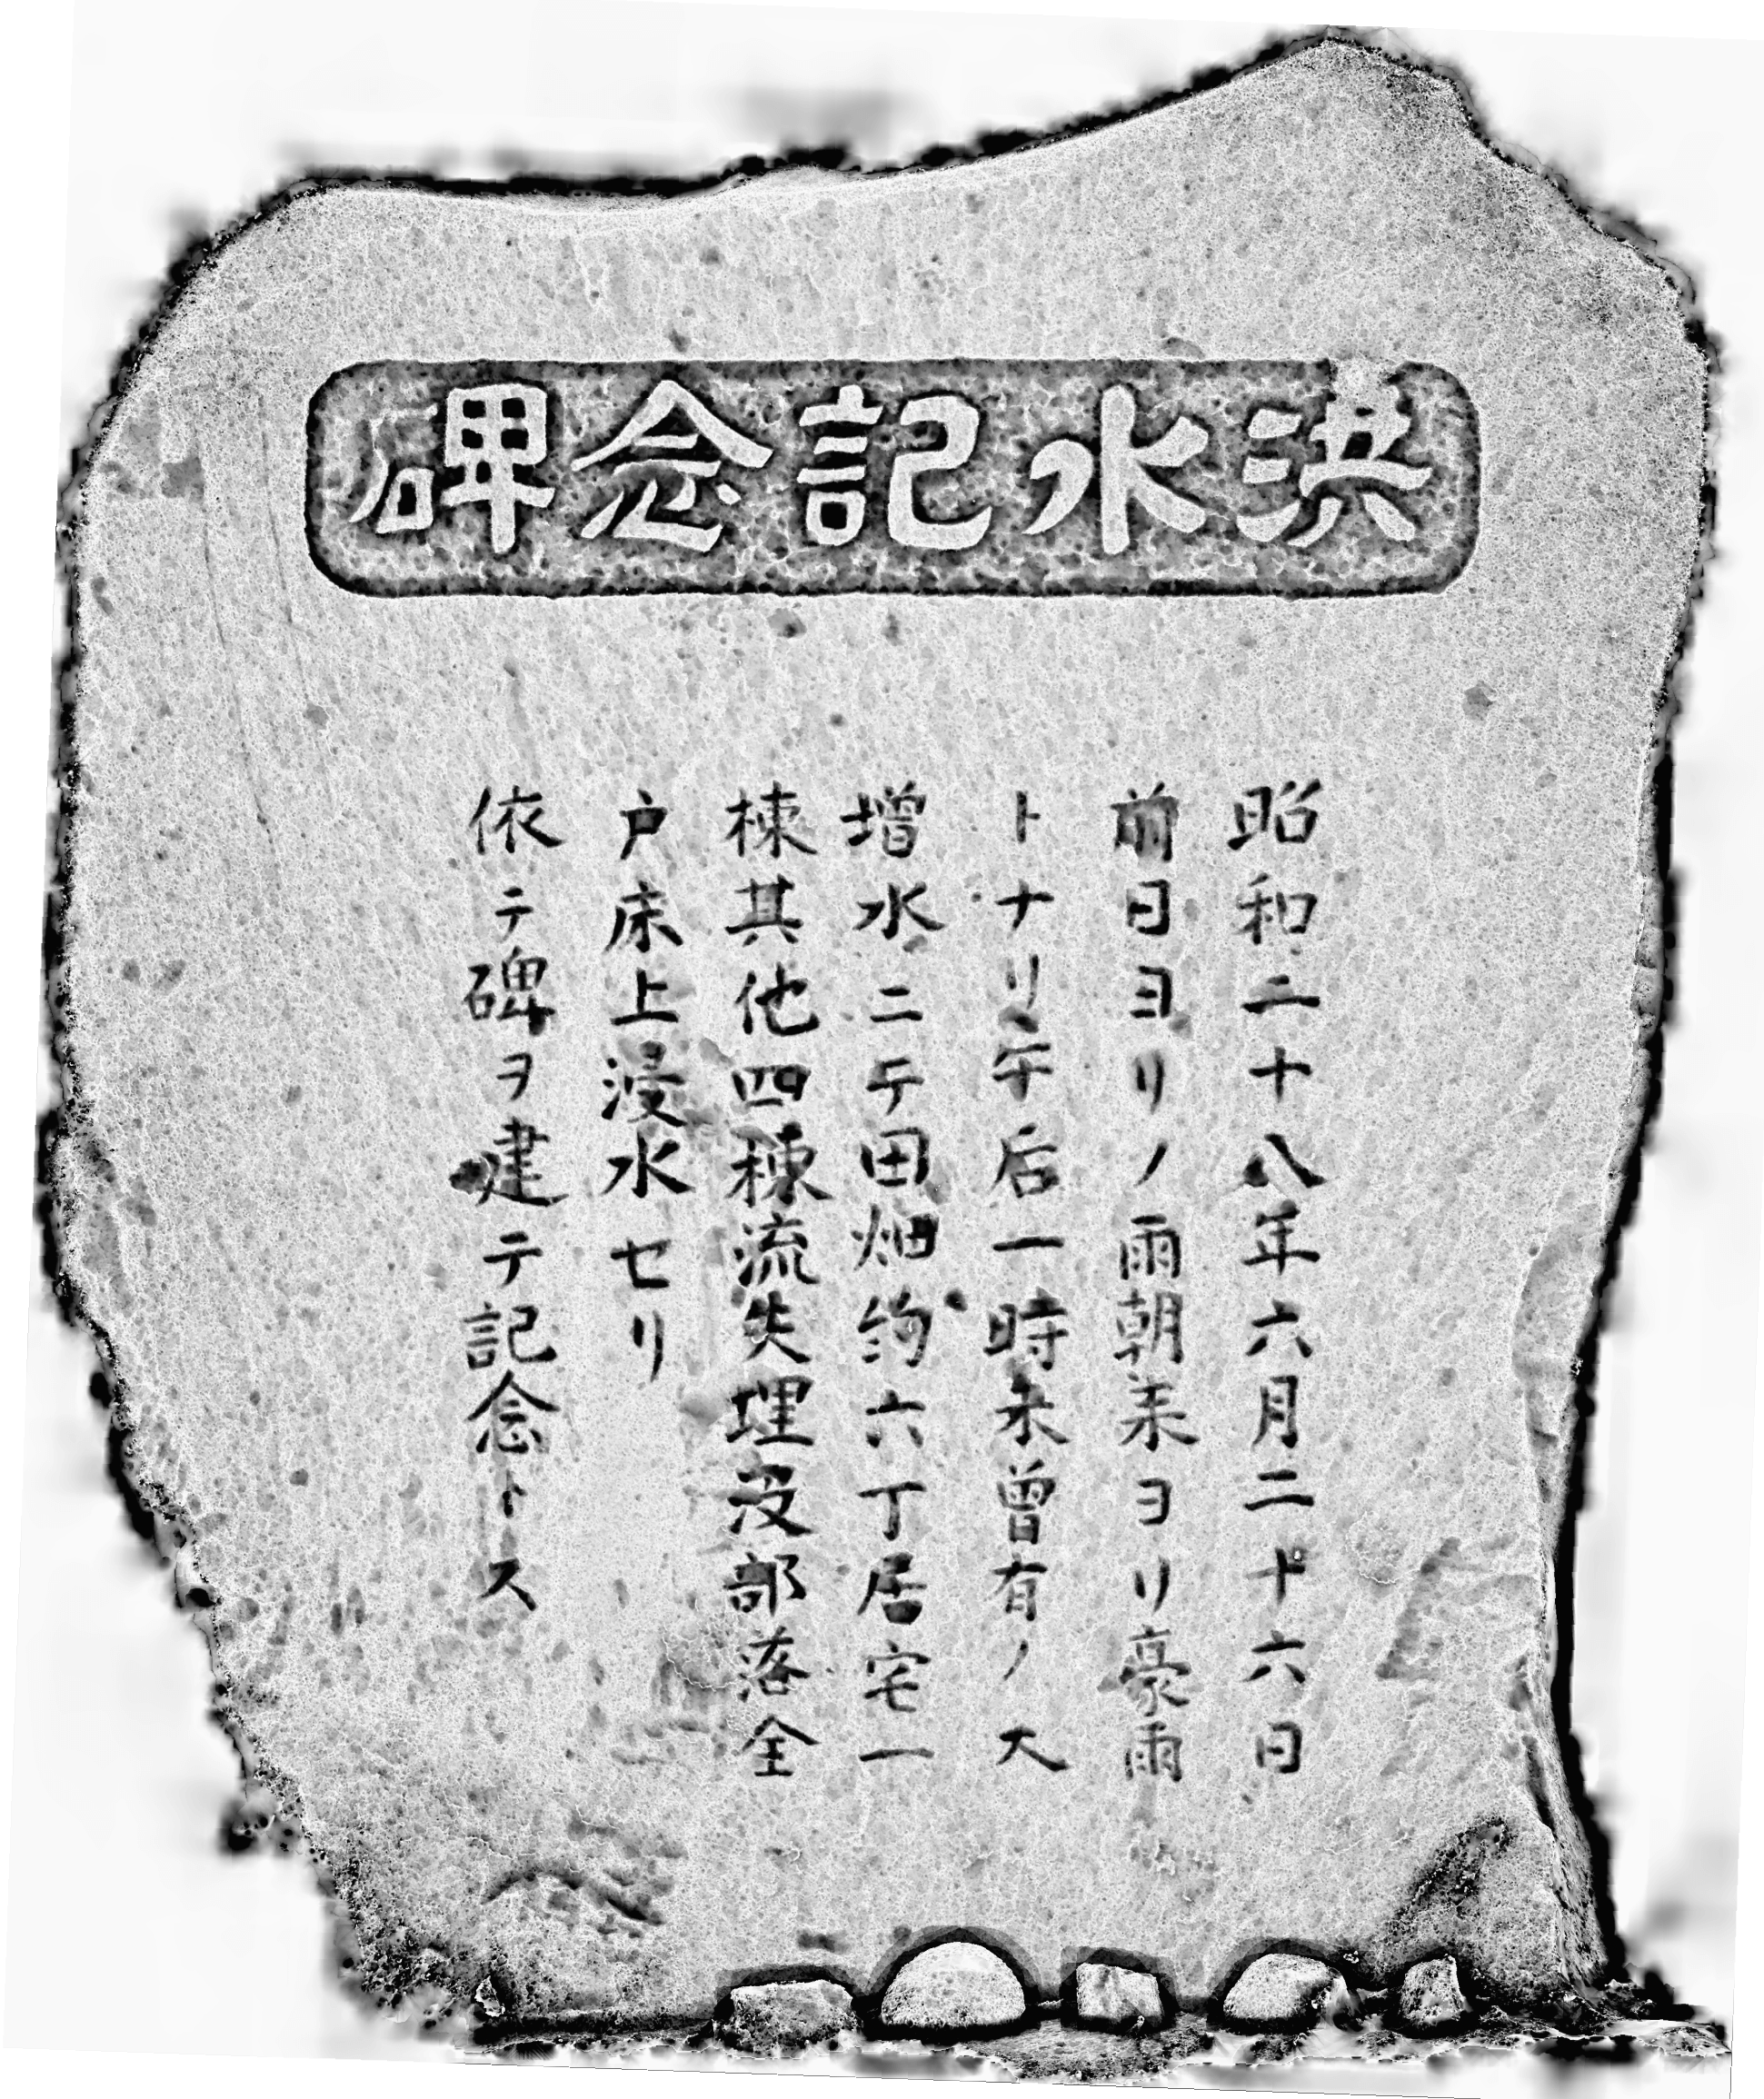 洪水記念碑
昭和二十八年六月二十六日
前日ヨリノ雨朝来ヨリ豪雨
トナリ午后一時未曾有ノ大
増水ニテ田畑約六丁居宅一
棟其他四棟流失埋没部落全
戸床上浸水セリ
依テ碑ヲ建テ記念トス